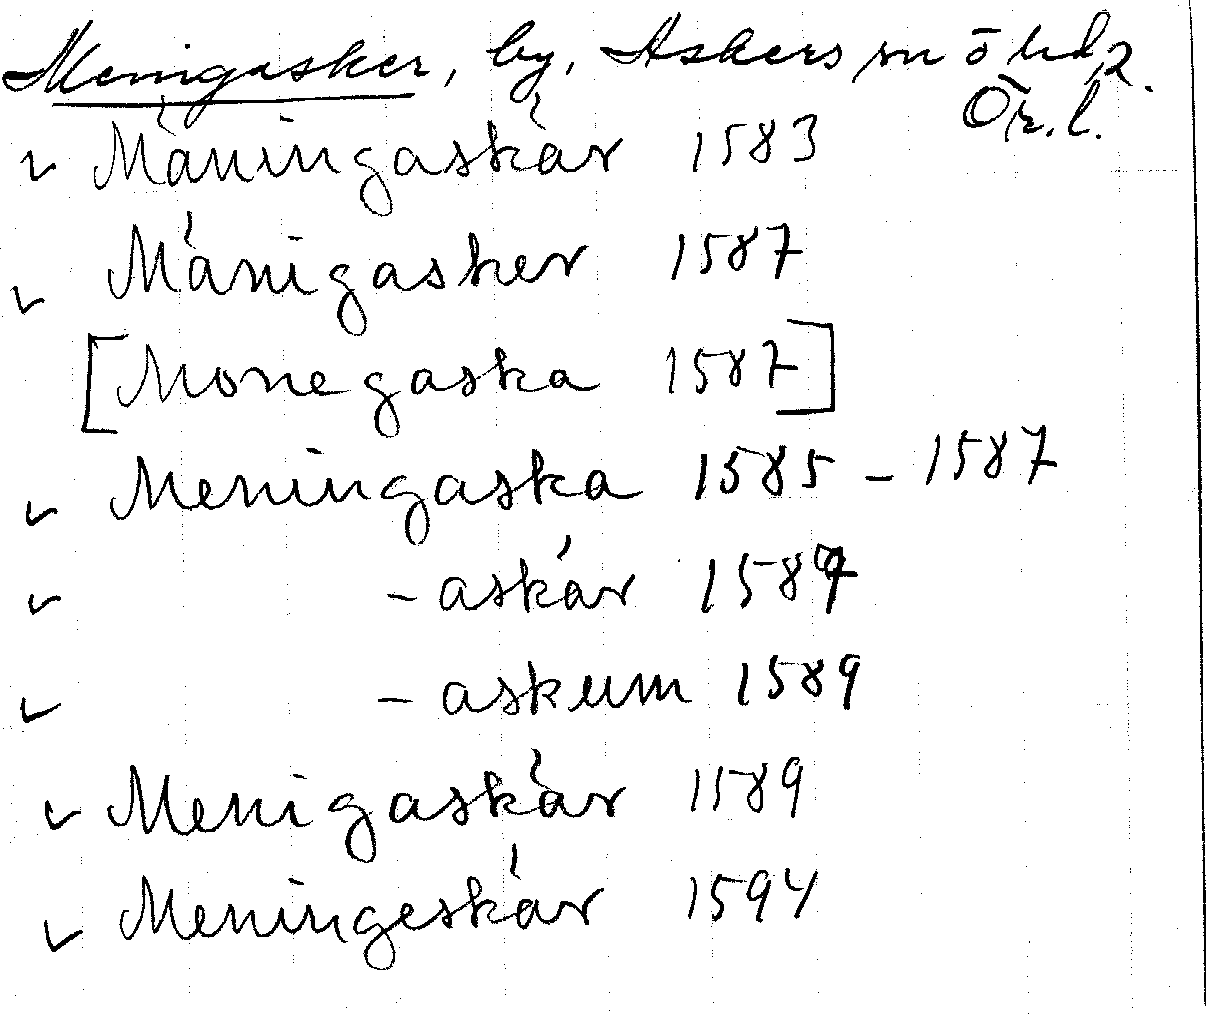 Menigasker, by, Askers sn Ö hd,
Ör. l.
Måningaskår 1583
Månigasker 1587
[Monegaska 1587]
Meningaska 1585 – 1587
– askår 1587
– askum 1589
Menigaskår 1589
Meningeskår 1594